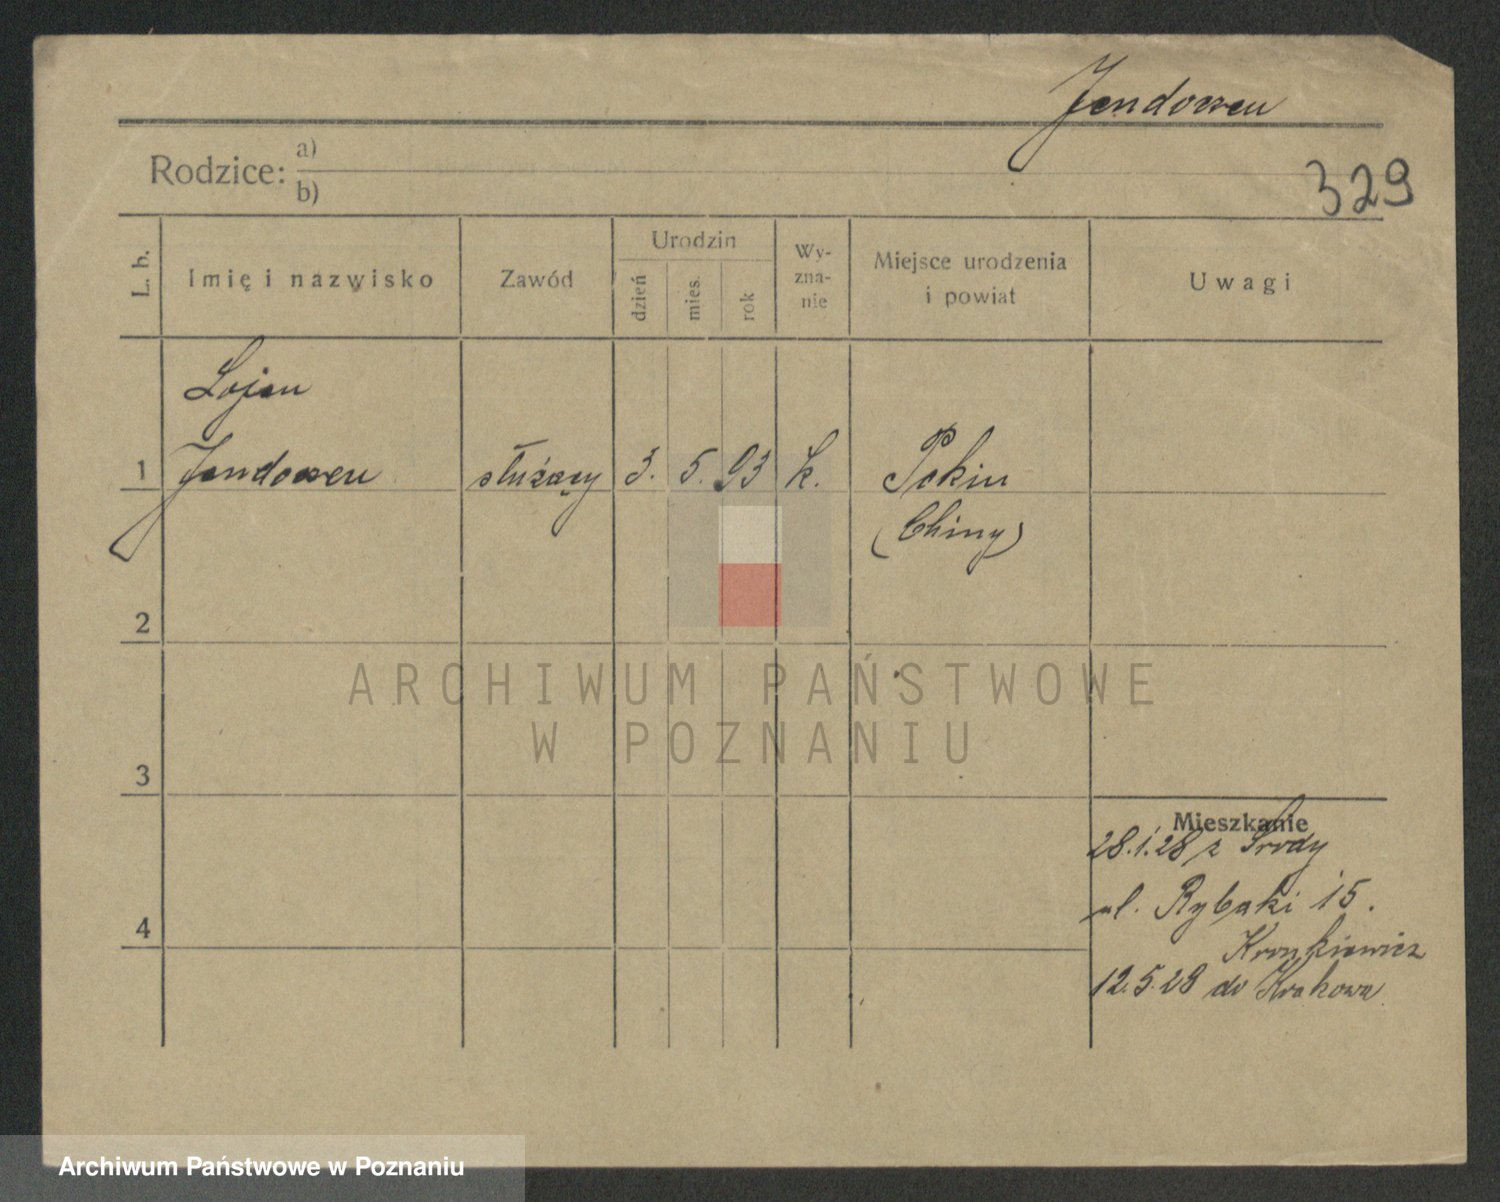 Jendossen
Rodzice: a)
b)
329
L. b.
Imię i nazwisko
Zawód
Urodzin
dzień
mies.
rok
Wy-
zna-
nie
Miejsce urodzenia
i powiat
Uwagi
Lojen
1 Jendossen służący 3. 5. 93 k. Pekin
(Chiny)
2
3
4
Mieszkanie
28.1.28 z Środy
ul. Rybaki 15.
12.5.28 do Krakowa
ARCHIWUM PAŃSTWOWE
W POZNANIU
Archiwum Państwowe w Poznaniu